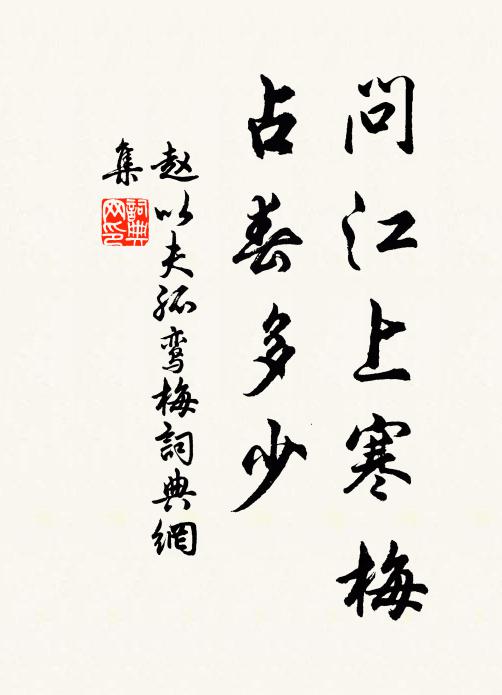 问江上寒梅
占春多少
赵以夫孤鸾梅詞典網
集
詞典
网印